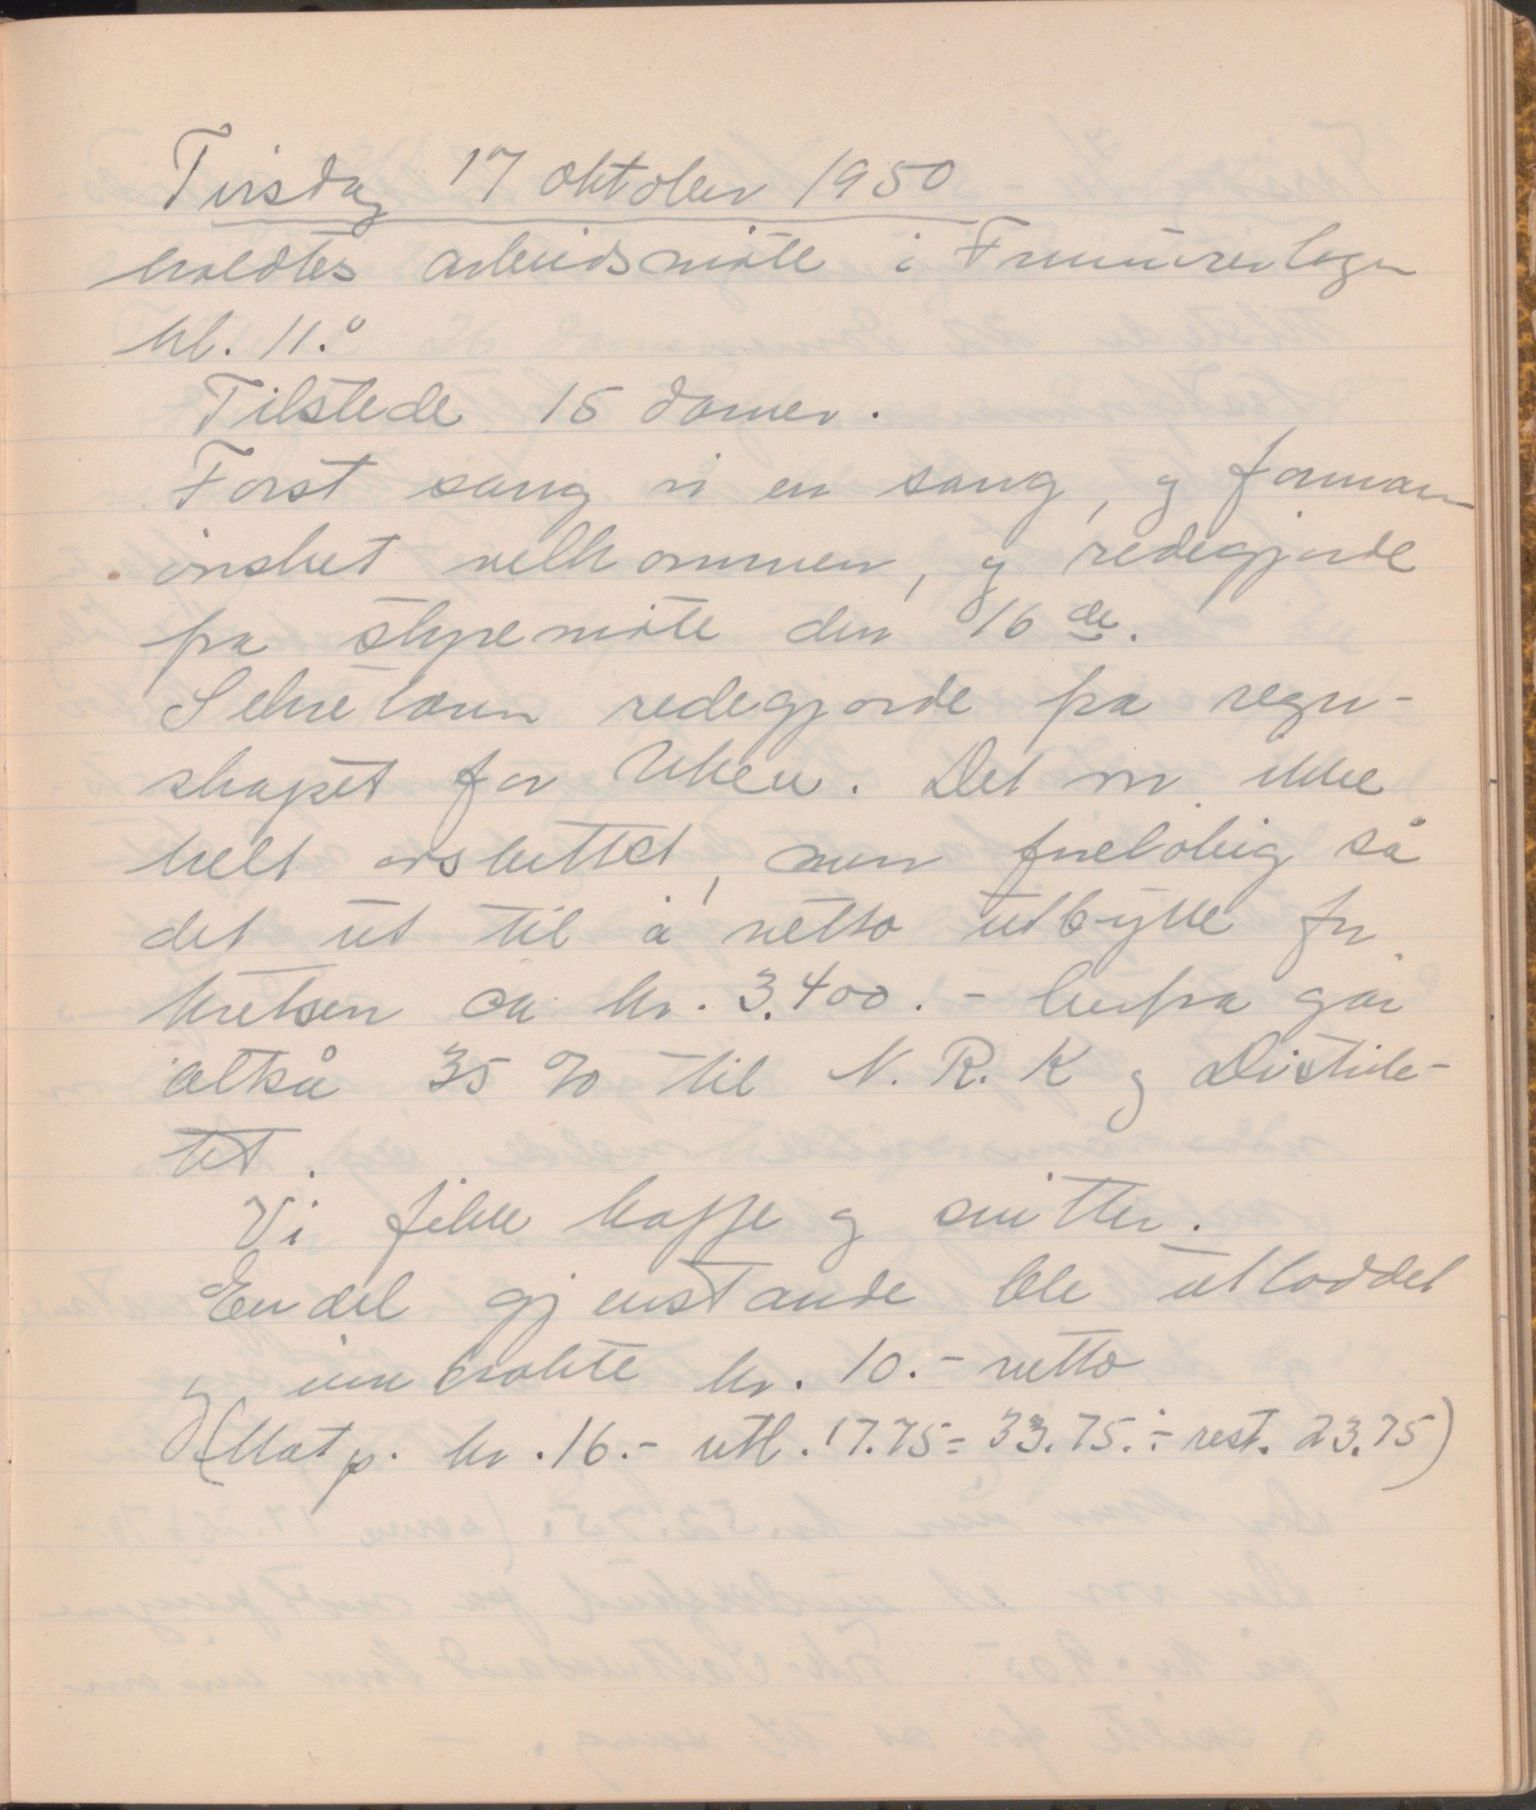 Tirsdag 17 oktober 1950
holdtes arbeidsmøte i Frimurerlogen
kl. 11.0
Tilstede 15 damer.
Først sang vi en sang, og forman
ønsket velkommen, og redegjorde
fra styremøte den 16de.
Sekretæren redegjorde fra regn-
skapet for Uken. Det var ikke
helt avsluttet, men foreløbig så
det ut til å netto utbytte for
kretsen ca kr. 3.400.- herfra går
altså 35 % til N. R. K og Distrik-
tet.
Vi fikk kaffe og snitter.
Endel gjenstande ble utloddet
og innbrakte kr. 10.- netto
(Mat p. kr. 16.- utl. 17.75 = 33.75. ÷ rest. 23.75)